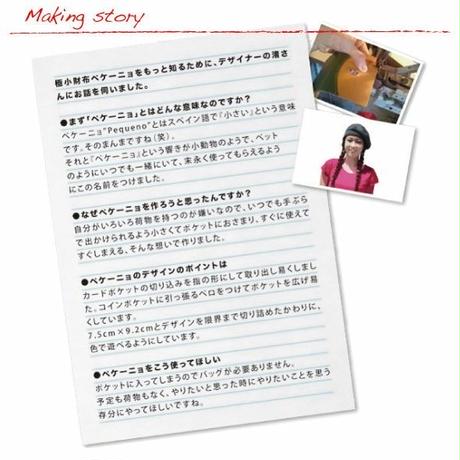 Making story
極小財布ペケーニョをもっと知るために、デザイナーの濱さ
んにお話を伺いました。
●まず「ペケーニョ」とはどんな意味なのですか?
ペケーニョ"Pequeno"とはスペイン語で『小さい』という意味
です。そのまんまですね（笑）。
それと『ペケーニョ』という響きが小動物のようで、ペット
のようにいつでも一緒にいて、末永く使ってもらえるよう
にこの名前をつけました。
●なぜペケーニョを作ろうと思ったんですか?
自分がいろいろ荷物を持つのが嫌いなので、いつでも手ぶら
で出かけられるよう小さくてポケットにおさまり、すぐに使えて
すぐしまえる、そんな想いで作りました。
●ペケーニョのデザインのポイントは
カードポケットの切り込みを指の形にして取り出し易くしまし
た。コインポケットに引っ張るベロをつけてポケットを広げ易
くしています。
7.5cm×9.2cmとデザインを限界まで切り詰めたかわりに、
色で遊べるようにしています。
●ペケーニョをこう使ってほしい
ポケットに入ってしまうのでバッグが必要ありません。
予定も荷物もなく、やりたいと思った時にやりたいことを思う
存分にやってほしいですね。